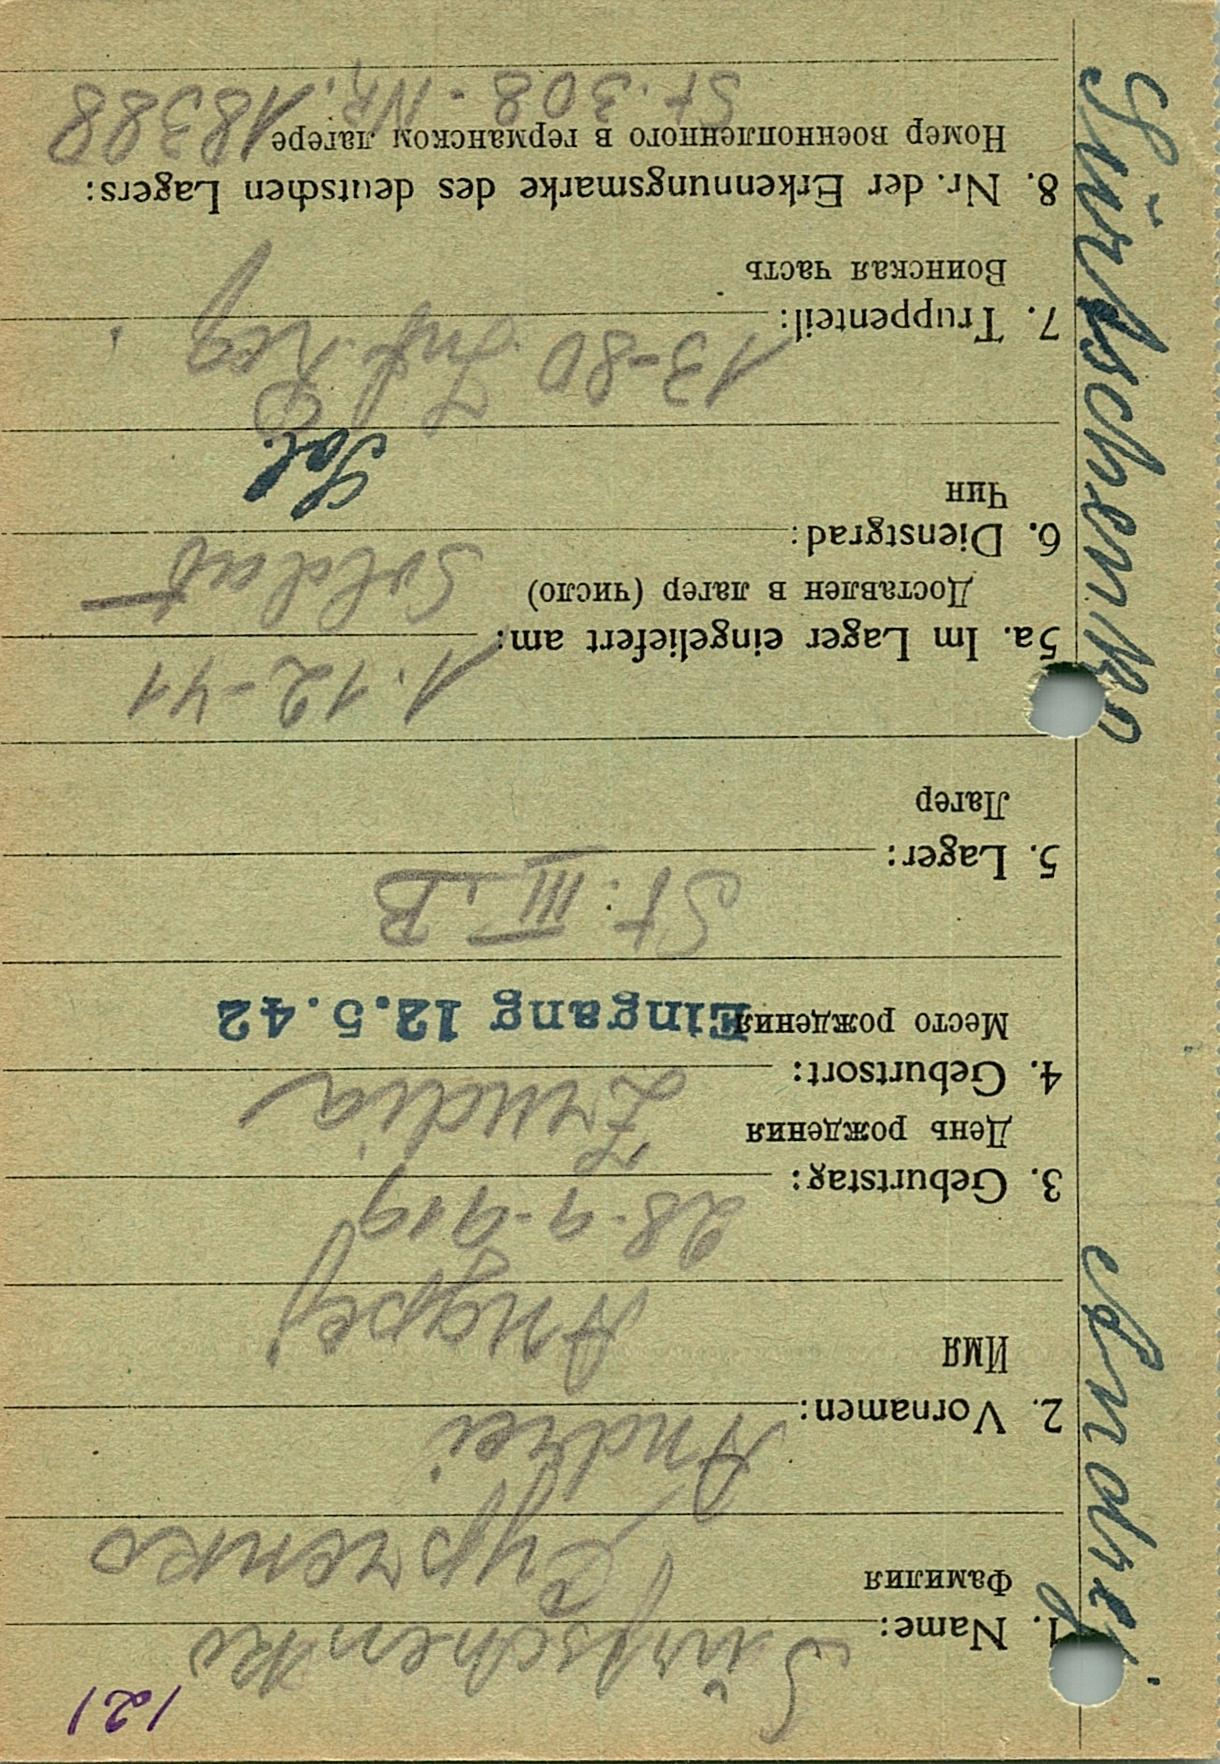 121
1. Name: Sŭrtschenko
Фамилия Сурченко
2. Vornamen: Andrei
Имя Андрей
3. Geburtstag: 28-9-919
День рождения
4. Geburtsort:
Место рождения Eingang 12.5.42
5. Lager: St. III. B
Лагер
5a. Im Lager eingeliefert am: 1.12-41
Доставлен в лагер (число)
6. Dienstgrad: Soldat
Чин Sol.
7. Truppenteil: 13-80 Inf Reg
Воинская часть
8. Nr. der Erkennungsmarke des deutschen Lagers:
Номер военнопленного в германском лагере St. 308 - Nr. 18388
Sŭrtschenko Andrej